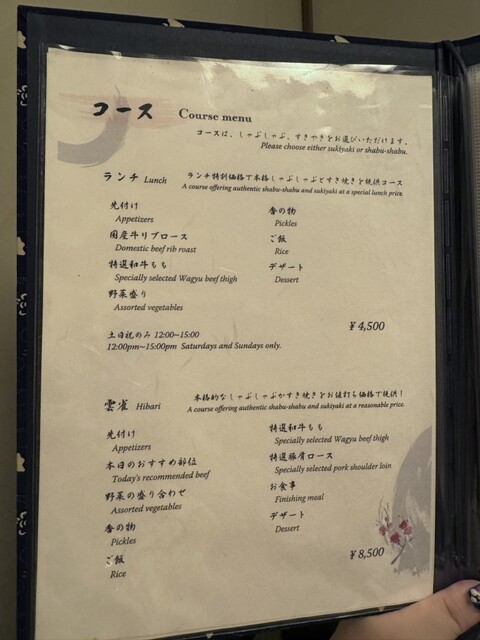 コース Course menu
コースは、しゃぶしゃぶ、すきやきをお選びいただけます。
Please choose either sukiyaki or shabu-shabu.
ランチ Lunch
ランチ特別価格で本格しゃぶしゃぶとすき焼きを提供コース
A course offering authentic shabu-shabu and sukiyaki at a special lunch price.
先付け
Appetizers
国産牛リブロース
Domestic beef rib roast
特選和牛もも
Specially selected Wagyu beef thigh
野菜盛り
Assorted vegetables
香の物
Pickles
ご飯
Rice
デザート
Dessert
¥4,500
土日祝のみ 12:00~15:00
12:00pm~15:00pm Saturdays and Sundays only.
雲雀 Hibari
本格的なしゃぶしゃぶかすき焼きをお値打ち価格で提供!
A course offering authentic shabu-shabu and sukiyaki at a reasonable price.
先付け
Appetizers
本日のおすすめ部位
Today's recommended beef
野菜の盛り合わせ
Assorted vegetables
香の物
Pickles
ご飯
Rice
特選和牛もも
Specially selected Wagyu beef thigh
特選豚肩ロース
Specially selected pork shoulder loin
お食事
Finishing meal
デザート
Dessert
¥8,500